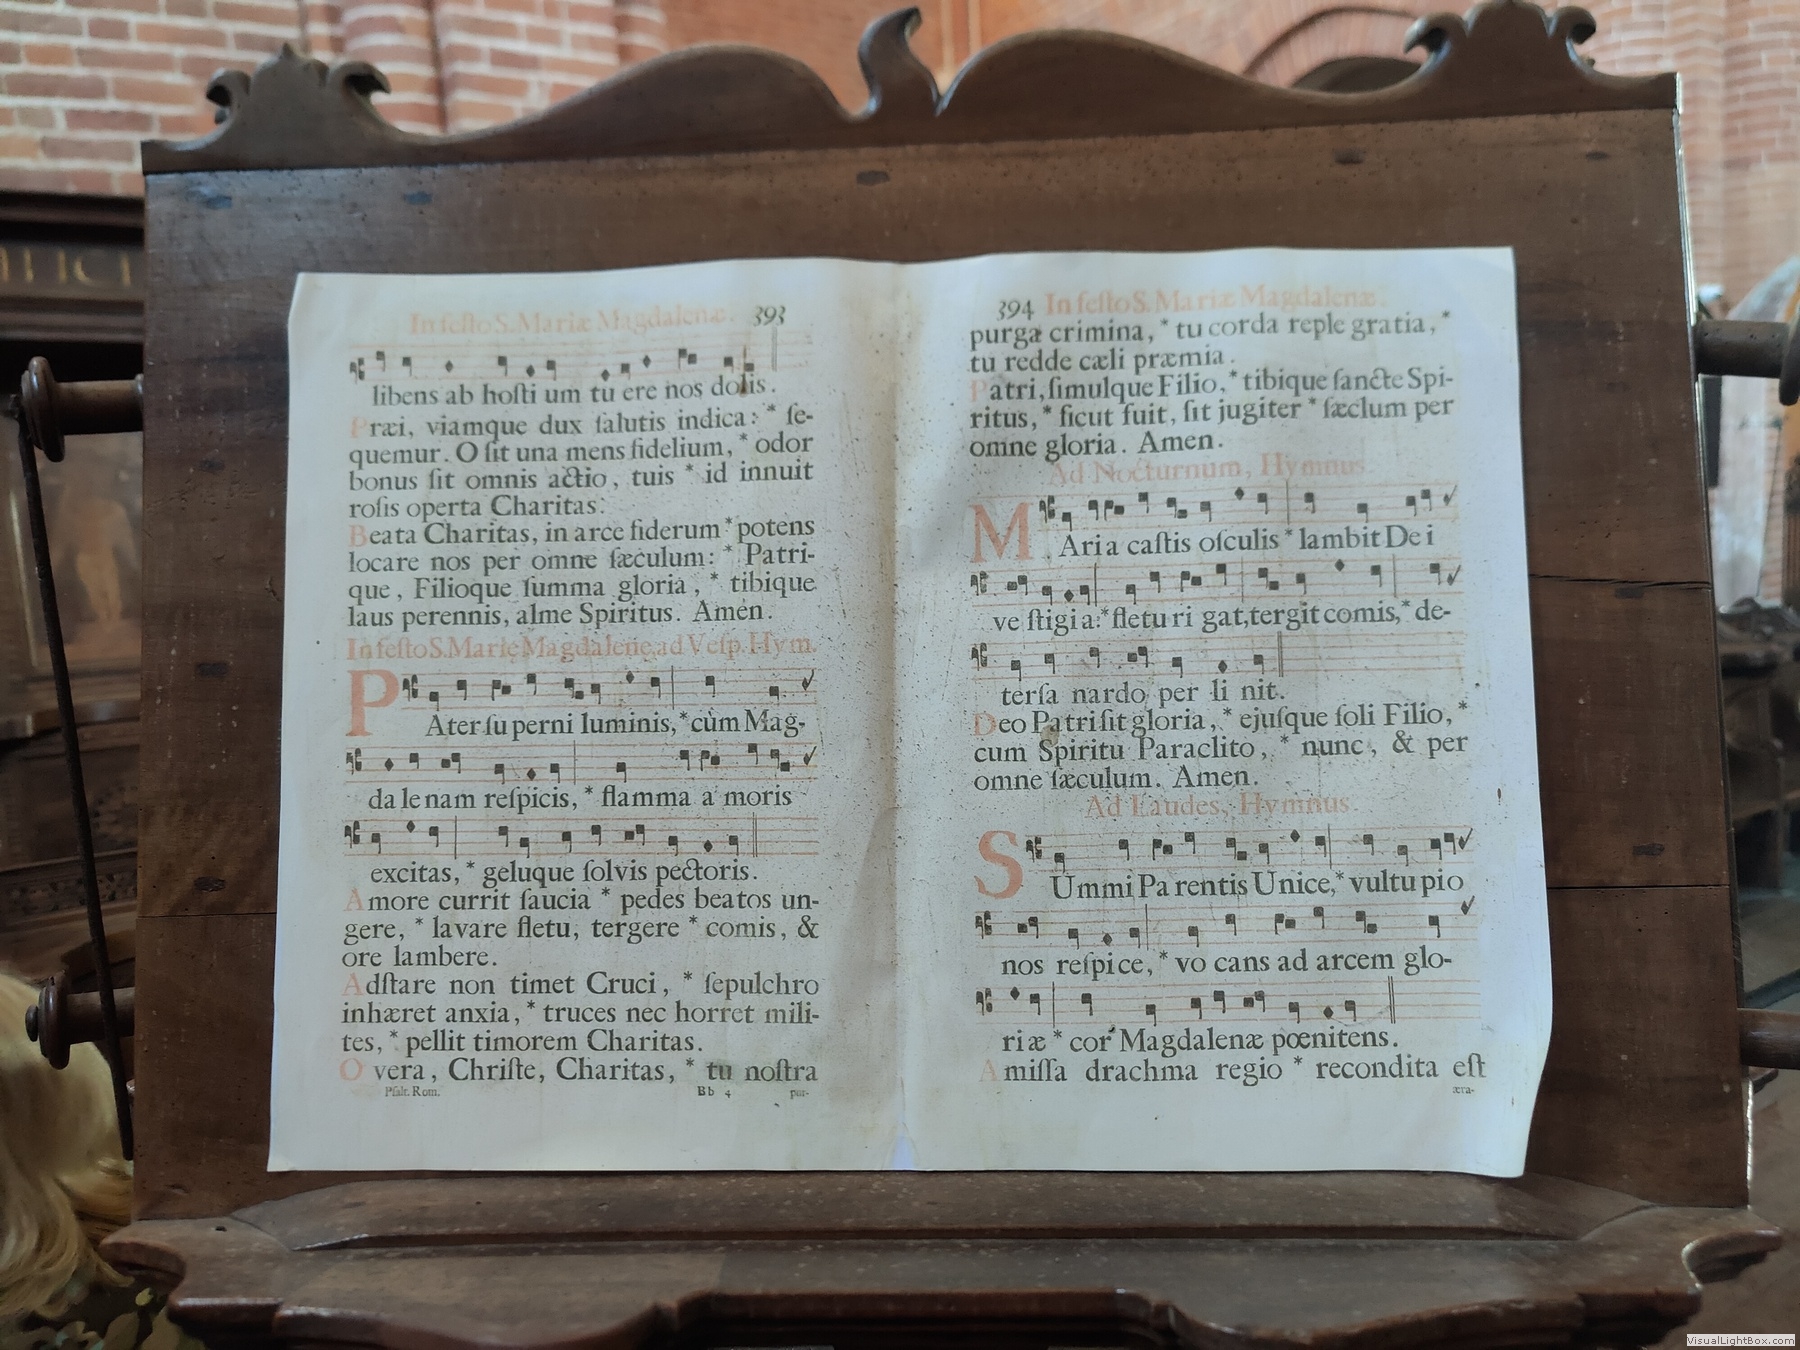 In festo S. Mariæ Magdalenæ. 393
libens ab hosti um tu ere nos dolis.
Præi, viamque dux ſalutis indica: * ſe-
quemur. O ſit una mens fidelium, * odor
bonus ſit omnis actio, tuis * id innuit
roſis operta Charitas:
Beata Charitas, in arce ſiderum * potens
locare nos per omne ſæculum: * Patri-
que, Filioque ſumma gloria, * tibique
laus perennis, alme Spiritus. Amen.
In feſto S. Marie Magdalene, ad Veſp. Hym.
PAter ſu perni luminis, * cùm Mag-
da le nam reſpicis, * flamma a moris
excitas, * geluque ſolvis pectoris.
Amore currit ſaucia * pedes beatos un-
gere, * lavare fletu, tergere * comis, &
ore lambere.
Adſtare non timet Cruci, * ſepulchro
inhæret anxia, * truces nec horret mili-
tes, * pellit timorem Charitas.
O vera, Chriſte, Charitas, * tu noſtra
Pſalt. Rom. Bb 4 pur-
394 In feſto S. Mariæ Magdalenæ.
purga crimina, * tu corda reple gratia, *
tu redde cæli præmia.
Patri, ſimulque Filio, * tibique ſancte Spi-
ritus, * ſicut fuit, ſit jugiter * ſæclum per
omne gloria. Amen.
Ad Nocturnum, Hymnus.
MAria caſtis oſculis * lambit De i
ve ſtigi a: * fletu ri gat, tergit comis, * de-
terſa nardo per li nit.
Deo Patri ſit gloria, * ejuſque ſoli Filio, *
cum Spiritu Paraclito, * nunc, & per
omne ſæculum. Amen.
Ad Laudes, Hymnus.
SUmmi Pa rentis Unice, * vultu pio
nos reſpice, * vo cans ad arcem glo-
ri æ * cor Magdalenæ pœnitens.
Amiſſa drachma regio * recondita eſt
æra-
VisualLightBox.com